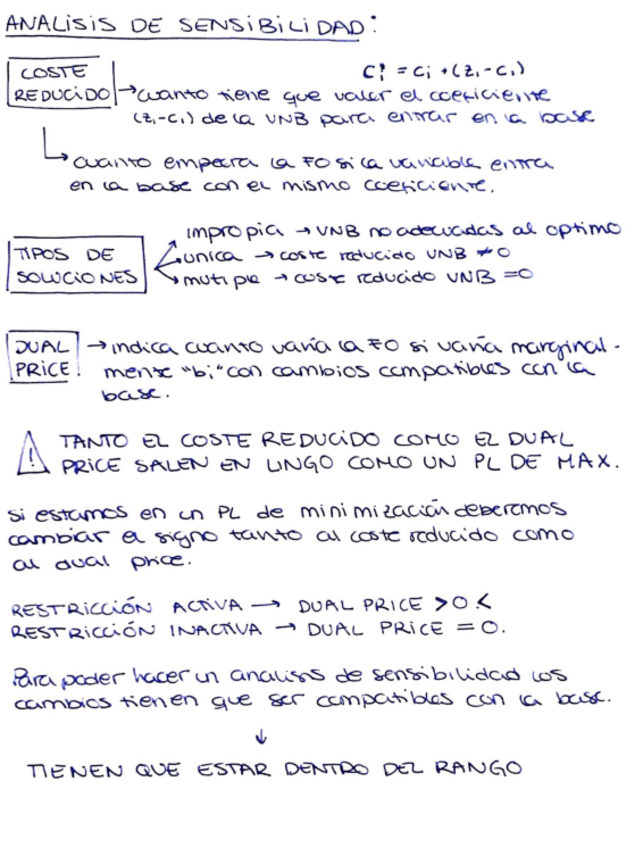 ANALISIS DE SENSIBILIDAD:
COSTE
REDUCIDO
C¡' = C¡ + (z¡ - c¡)
→ cuanto tiene que valer el coeficiente
(z¡-c¡) de la VNB para entrar en la base
↳ cuanto empeora la FO si la variable entra
en la base con el mismo coeficiente.
TIPOS DE
SOLUCIONES
impropia → VNB no adecuadas al optimo
unica → coste reducido VNB ≠ 0
mutiple → coste reducido VNB = 0
DUAL
PRICE
→ indica cuanto varía la FO si varía marginal-
mente "b¡" con cambios compatibles con la
base.
⚠ TANTO EL COSTE REDUCIDO COMO EL DUAL
PRICE SALEN EN LINGO COMO UN PL DE MAX.
si estamos en un PL de minimización deberemos
cambiar el signo tanto al coste reducido como
al dual price.
RESTRICCIÓN ACTIVA → DUAL PRICE >0<
RESTRICCIÓN INACTIVA → DUAL PRICE = 0.
Para poder hacer un analisis de sensibilidad los
cambios tienen que ser compatibles con la base.
↓
TIENEN QUE ESTAR DENTRO DEL RANGO